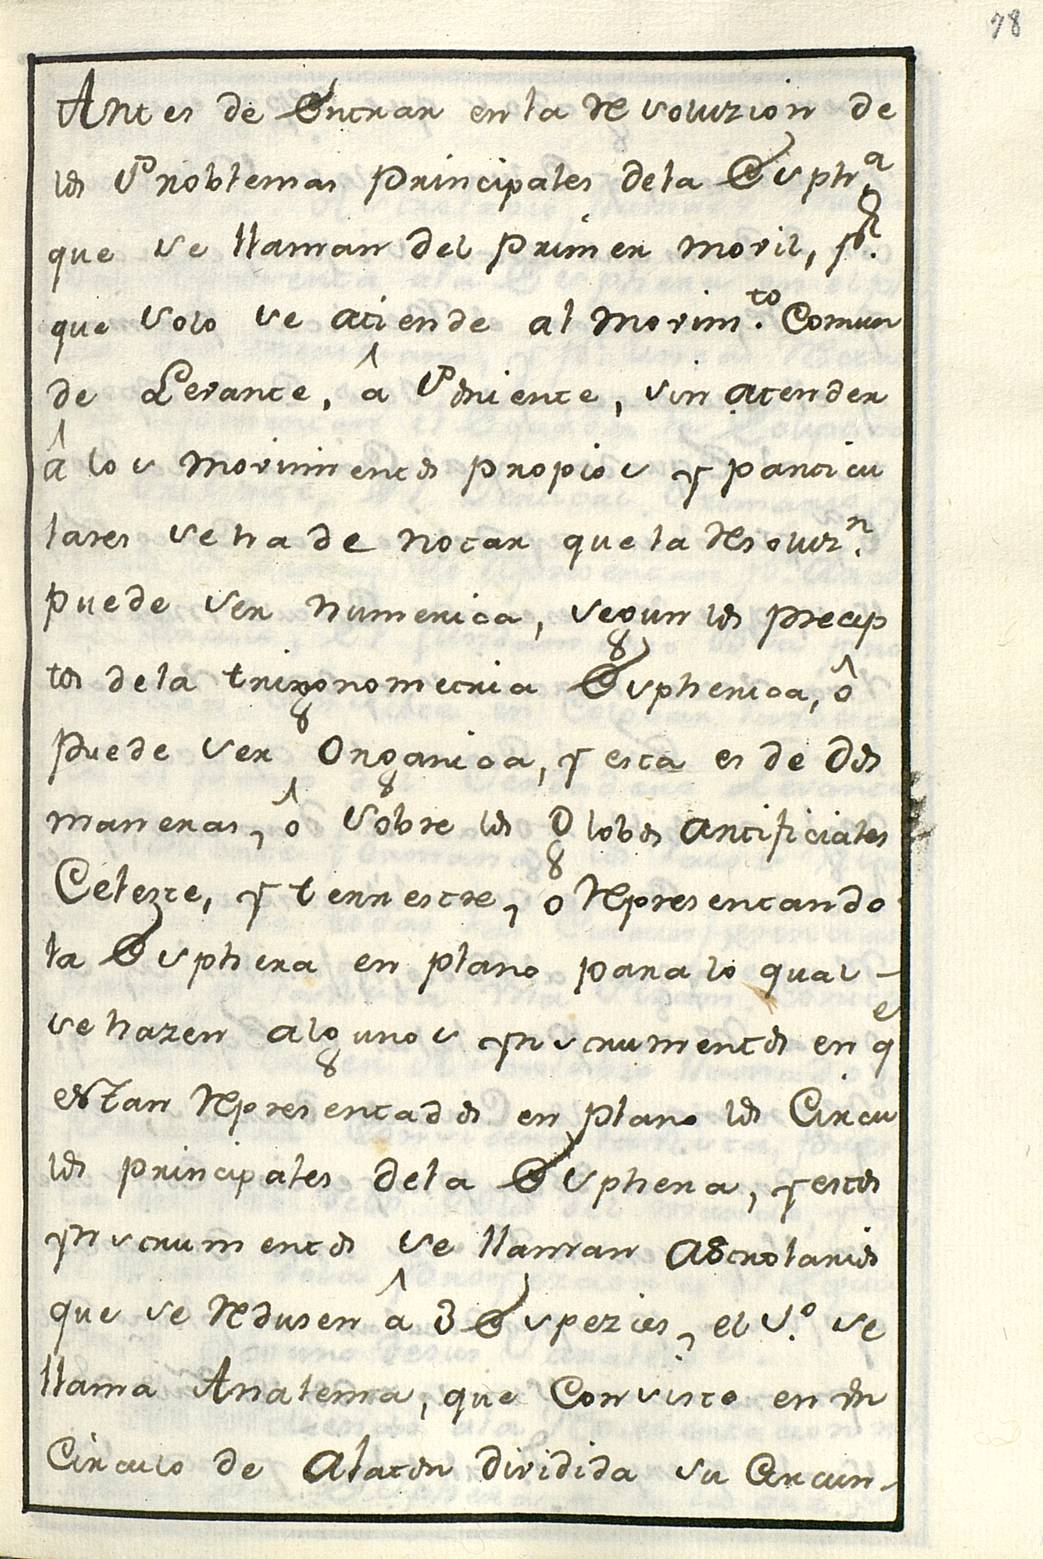 78
Antes de Entrar en la Resoluzion de
los Problemas Principales dela Esphr.ª
que se llaman del Primer movil, pr.
que solo se atiende al movim.to Comun
de Levante, â Poniente, sin atender
â los movimientos propios y particu
lares se ha de notar que la Resoluz.n
puede ser numerica, segun los precep
tos dela trigonometria Espherica, ô
puede ser Organica, y esta es de dos
maneras, ô sobre los Globos artificiales
Celezte, y terrestre, o Representando
la Esphera en plano para lo qual -
se hazen algunos ynstrumentos en qe
estan Representados en plano los Circu
los principales dela Esphera, y estos
ynstrumentos se llaman Astrolarios
que se Redusen â 3 Espezies, el P.º se
llama Analema, que Consiste en un
Circulo de alaton dividida su Circun-